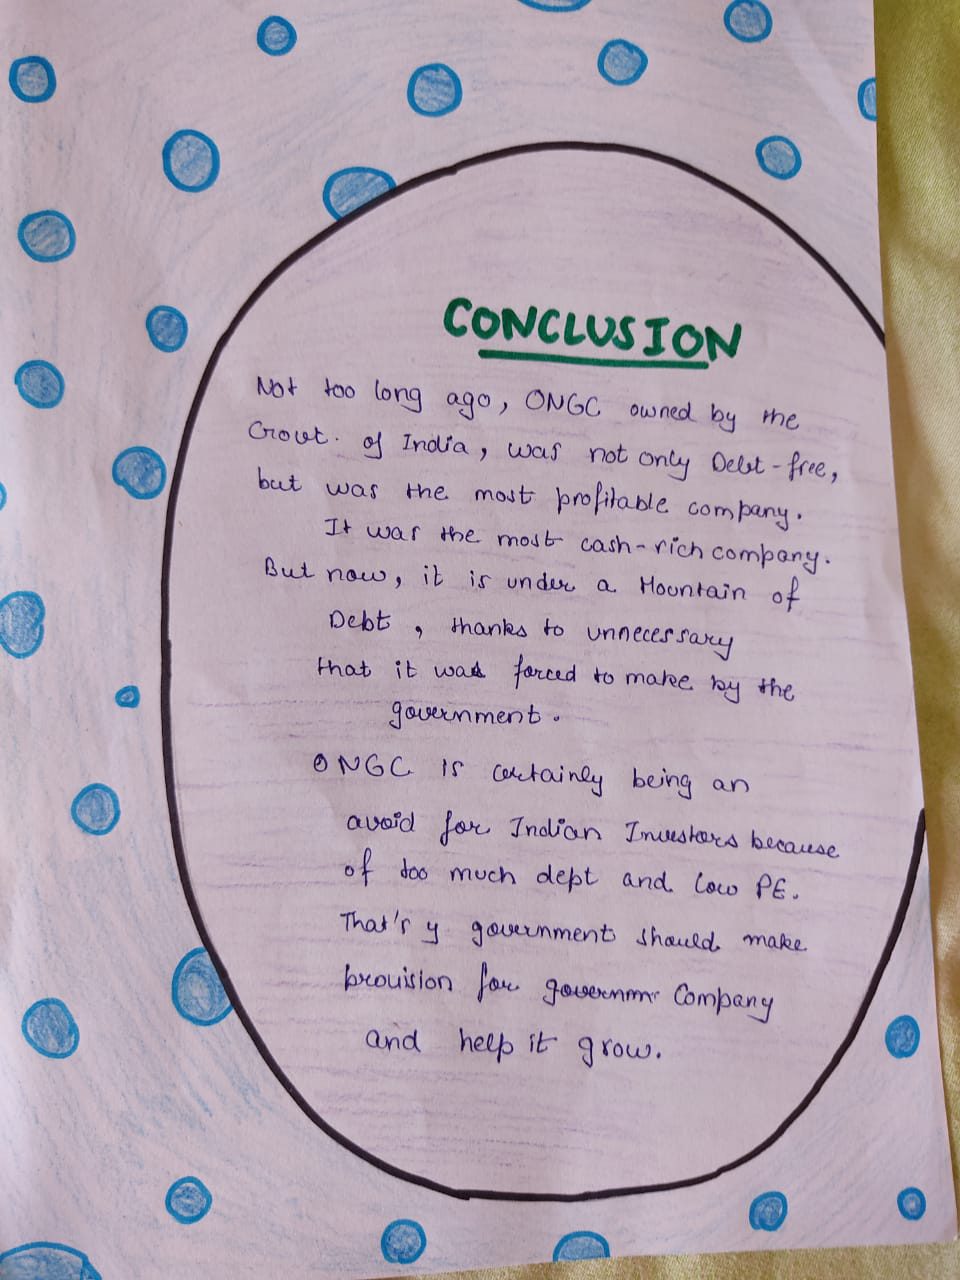 CONCLUSION
Not too long ago, ONGC owned by the
Govt. of India, was not only Debt-free,
but was the most profitable company.
It was the most cash-rich company.
But now, it is under a Mountain of
Debt, thanks to unnecessary
that it was forced to make by the
government.
ONGC is certainly being an
avoid for Indian Investors because
of too much dept and low PE.
That's y government should make
provision for governm Company
and help it grow.